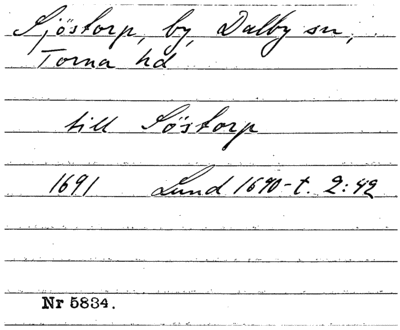 Sjöstorp, by, Dalby sn,
Torna hd
till Söstorp
1691 Lund 1690-t. 2:42
Nr 5834.